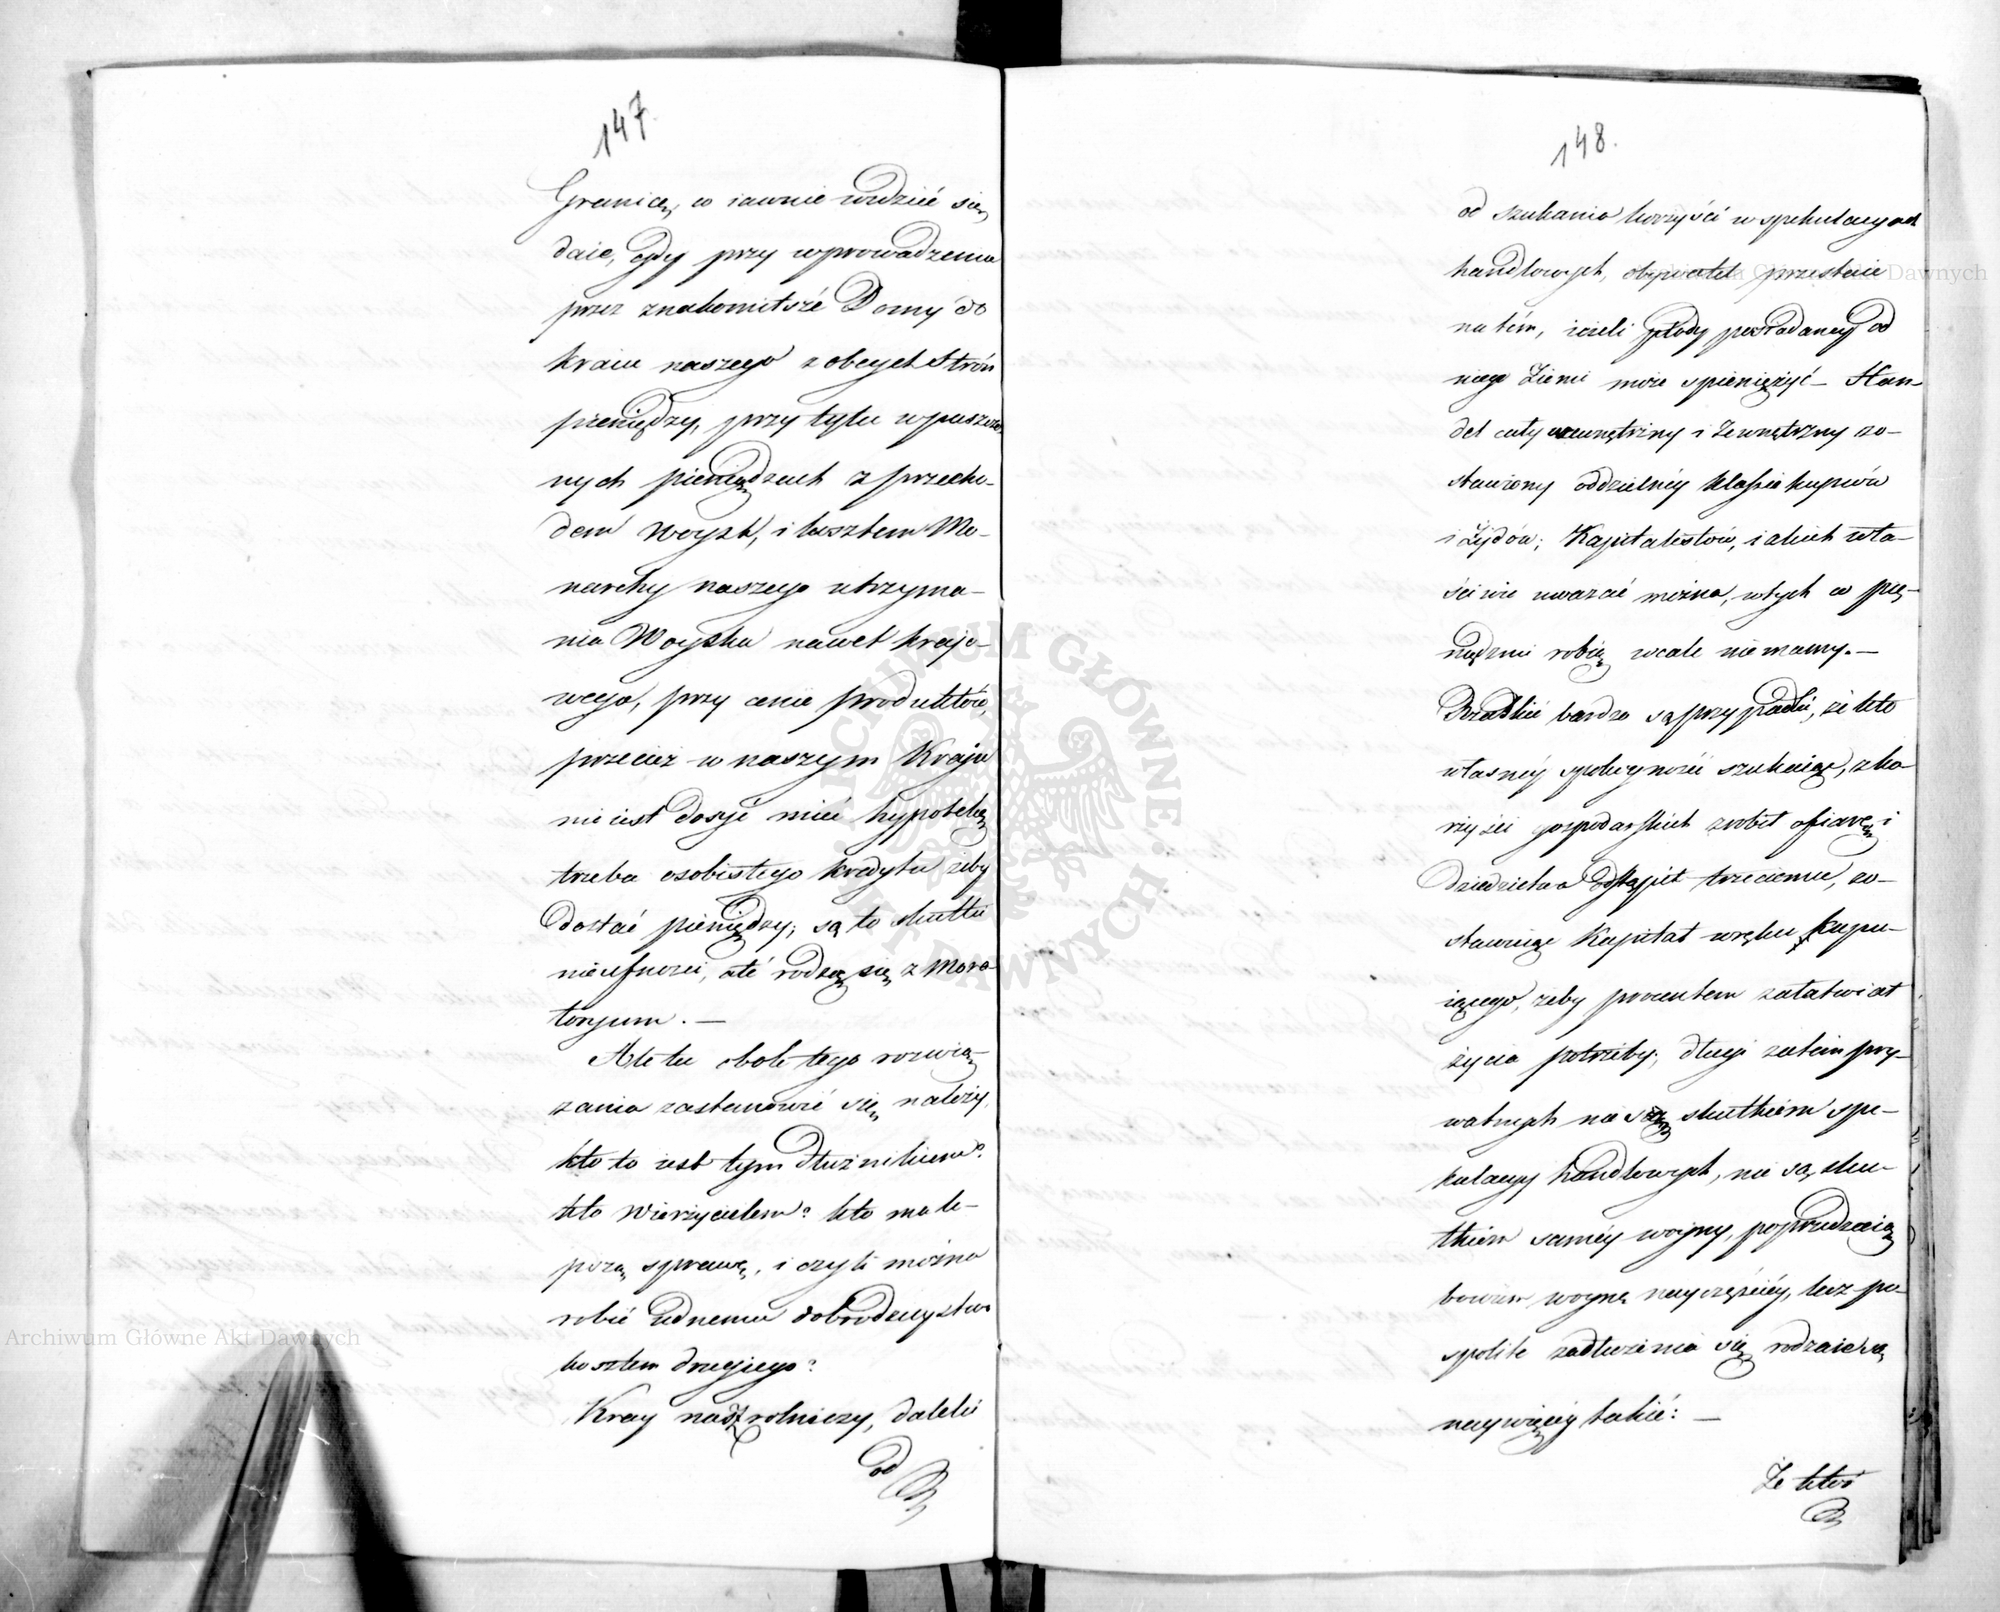 147.
Granicę, co iawnie widzieć się
daie, gdy przy wprowadzeniu
przez znakomitsze Domy do
kraiu naszego z obcych Strón
pieniędzy, przy tylu wpuszczo-
nych pieniądzach z przecho-
dem Woysk, i kosztem Mo-
narchy naszego utrzyma-
nia Woyska nawet krajo-
wego, przy cenie produktów,
przecież w naszym Kraju
nie iest dosyć mieć hypotekę
trzeba osobistego kredytu żeby
dostać pieniędzy; są to skutki
nieufności, ale rodzą się z Mora-
toryum. —
Ale tu obok tego rozwią-
zania zastanowić się należy,
kto to iest tym dłużnikiem?
kto Wierzycielem? kto ma le-
pszą sprawę, i czyli można
robić iednemu dobrodzieystwo
kosztem drugiego?
Kray nasz rolniczy, daleki
od
148.
od szukania korzyści w spekulacyach
handlowych, obywatel przestaie
na tém, ieżeli płody posiadaney od
niego Ziemi może spieniężyć — Han-
del cały wewnętrzny i Zewnętrzny zo-
stawiony oddzielnéy klassie kupców
i Żydów; Kapitalistów, iakich wła-
ściwie uważać można, w tych co pie-
niędzmi robią wcale nie mamy. —
Rzadkie bardzo są przypadki, że kto
własnéy spokoyności szukaiąc, z ko-
rzyści gospodarskich zrobił ofiarę i
dziedzictwa odstąpił trzeciemu, zo-
stawuiąc Kapitał w ręku kupu-
iącego, żeby procentem załatwiał
życia potrzeby; długi zatem pry-
watnych nie są skutkiem spe-
kulacyy handlowych, nie są sku-
tkiem saméy woyny, poprzedzaią
bowiem woynę nayczęściéy, lecz po-
spolite zadłużenia się rodzaie są
naywięcéy takie: —
Że ktoś
Archiwum Główne Akt Dawnych
ARCHIWUM GŁÓWNE AKT DAWNYCH